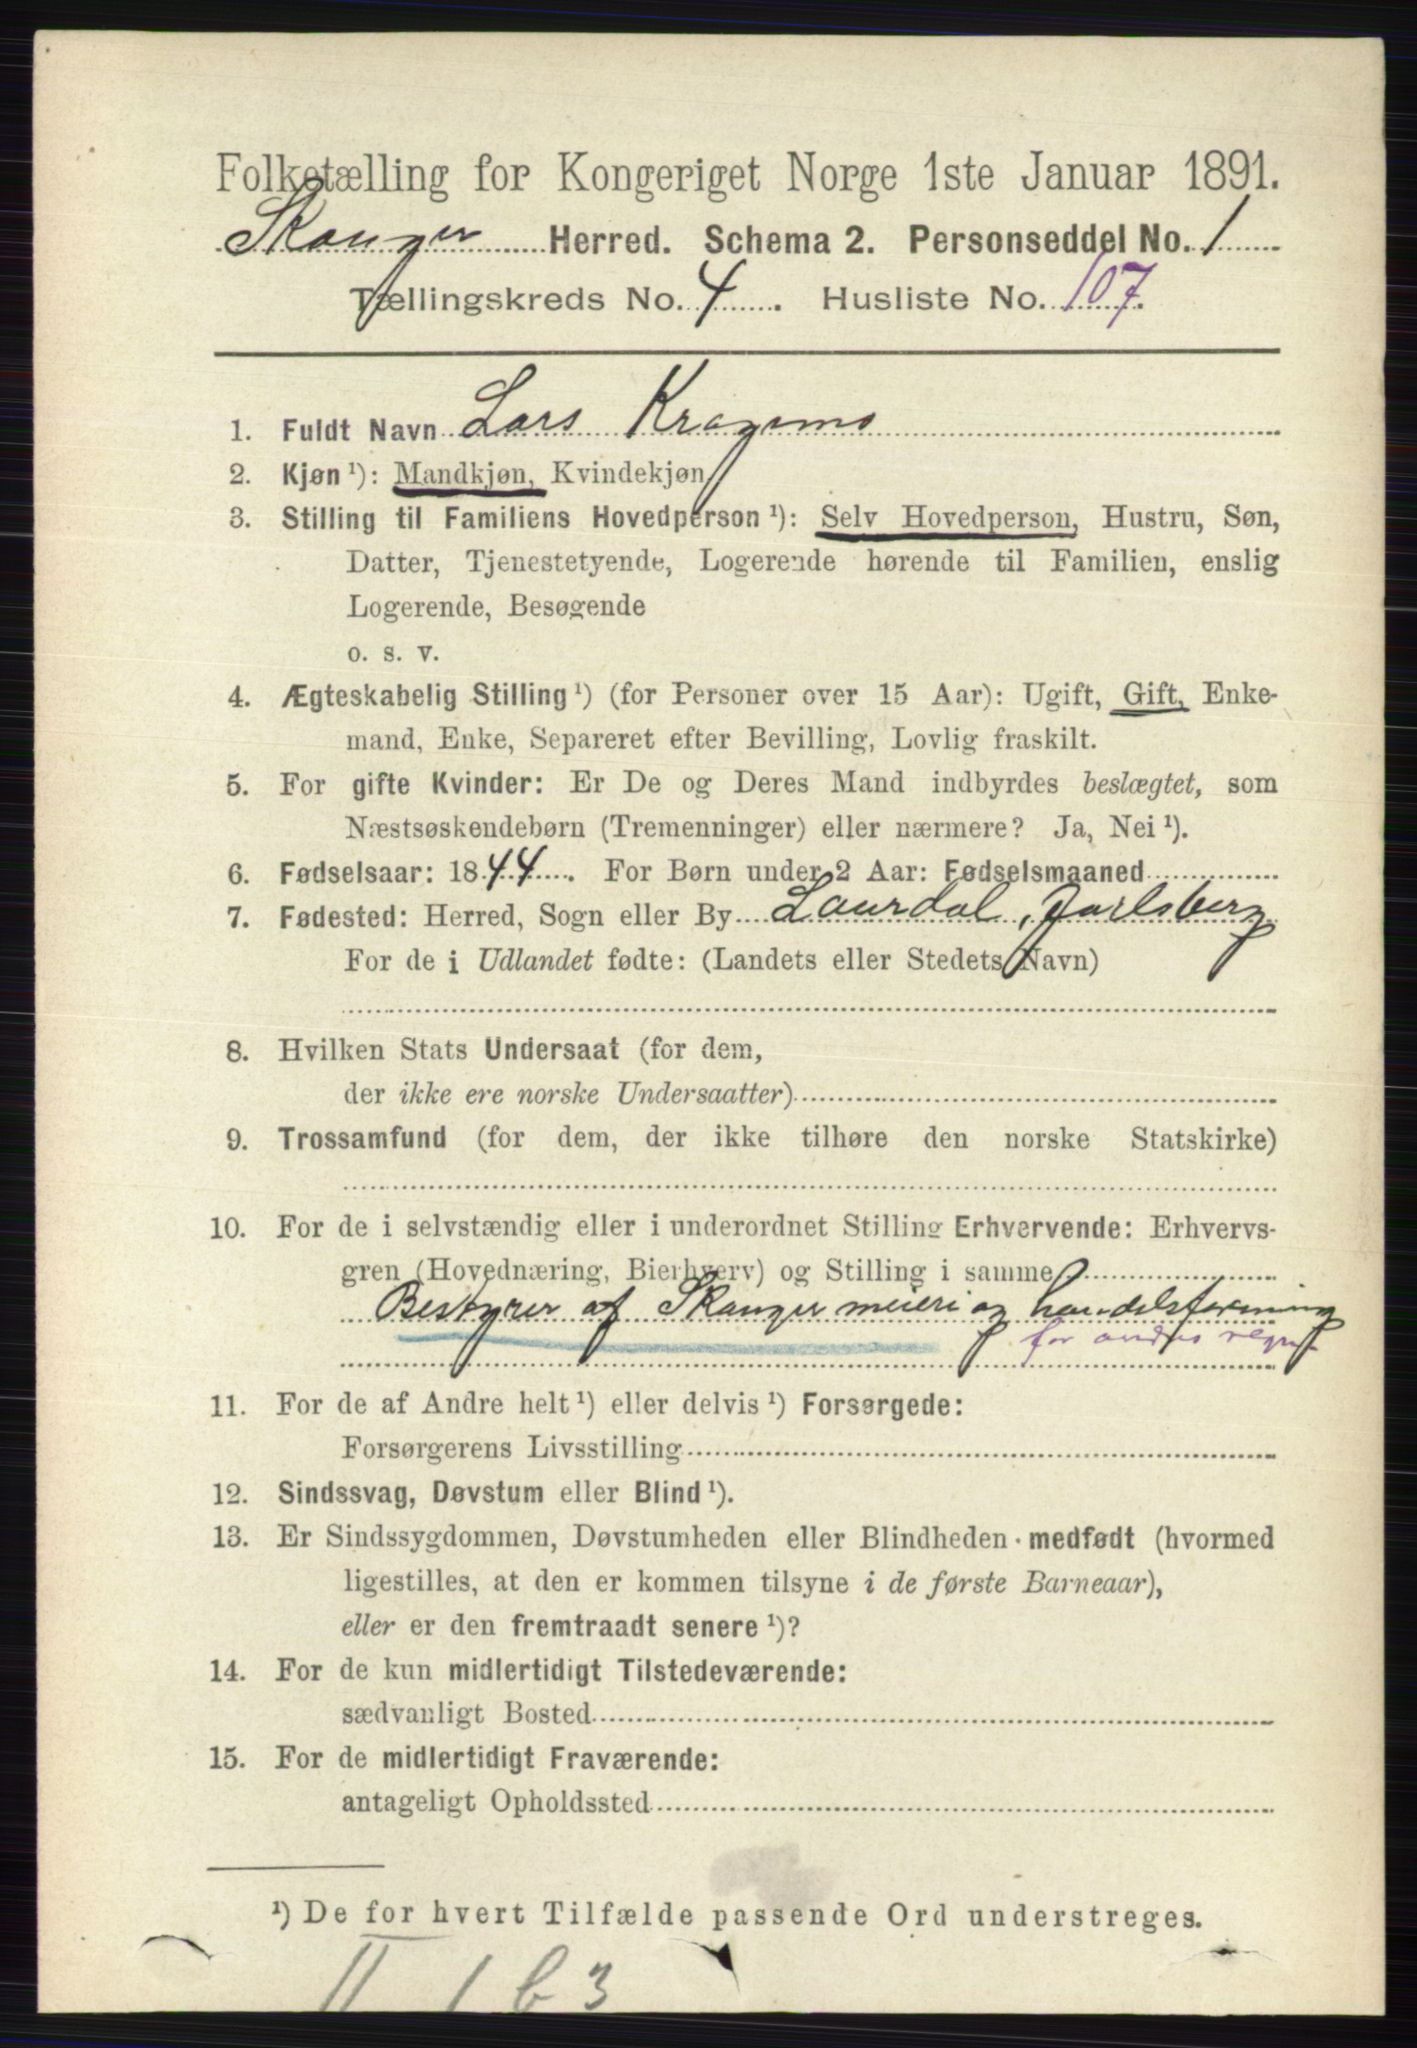 Folketælling for Kongeriget Norge 1ste Januar 1891.
Skauger Herred. Schema 2. Personseddel No. 1
Tællingskreds No. 4. Husliste No. 107.
1. Fuldt Navn Lars
2. Kjøn ¹): Mandkjøn, Kvindekjøn
3. Stilling til Familiens Hovedperson ¹): Selv Hovedperson, Hustru, Søn,
Datter, Tjenestetyende, Logerende hørende til Familien, enslig
Logerende, Besøgende
o. s. v.
4. Ægteskabelig Stilling ¹) (for Personer over 15 Aar): Ugift, Gift, Enke-
mand, Enke, Separeret efter Bevilling, Lovlig fraskilt.
5. For gifte Kvinder: Er De og Deres Mand indbyrdes beslægtet, som
Næstsøskendebørn (Tremenninger) eller nærmere? Ja, Nei ¹).
6. Fødselsaar: 1844. For Børn under 2 Aar: Fødselsmaaned
7. Fødested: Herred, Sogn eller By Laurdal, Jarlsberg
For de i Udlandet fødte: (Landets eller Stedets Navn)
8. Hvilken Stats Undersaat (for dem,
der ikke ere norske Undersaatter)
9. Trossamfund (for dem, der ikke tilhøre den norske Statskirke)
10. For de i selvstændig eller i underordnet Stilling Erhvervende: Erhvervs-
gren (Hovednæring, Bierhverv) og Stilling i samme
Bestyrer af Skauger meieri og handelsforening
for andres regn.
11. For de af Andre helt ¹) eller delvis ¹) Forsørgede:
Forsørgerens Livsstilling
12. Sindssvag, Døvstum eller Blind ¹).
13. Er Sindssygdommen, Døvstumheden eller Blindheden medfødt (hvormed
ligestilles, at den er kommen tilsyne i de første Barneaar),
eller er den fremtraadt senere ¹)?
14. For de kun midlertidigt Tilstedeværende:
sædvanligt Bosted
15. For de midlertidigt Fraværende:
antageligt Opholdssted
¹) De for hvert Tilfælde passende Ord understreges.
II 1 b 3